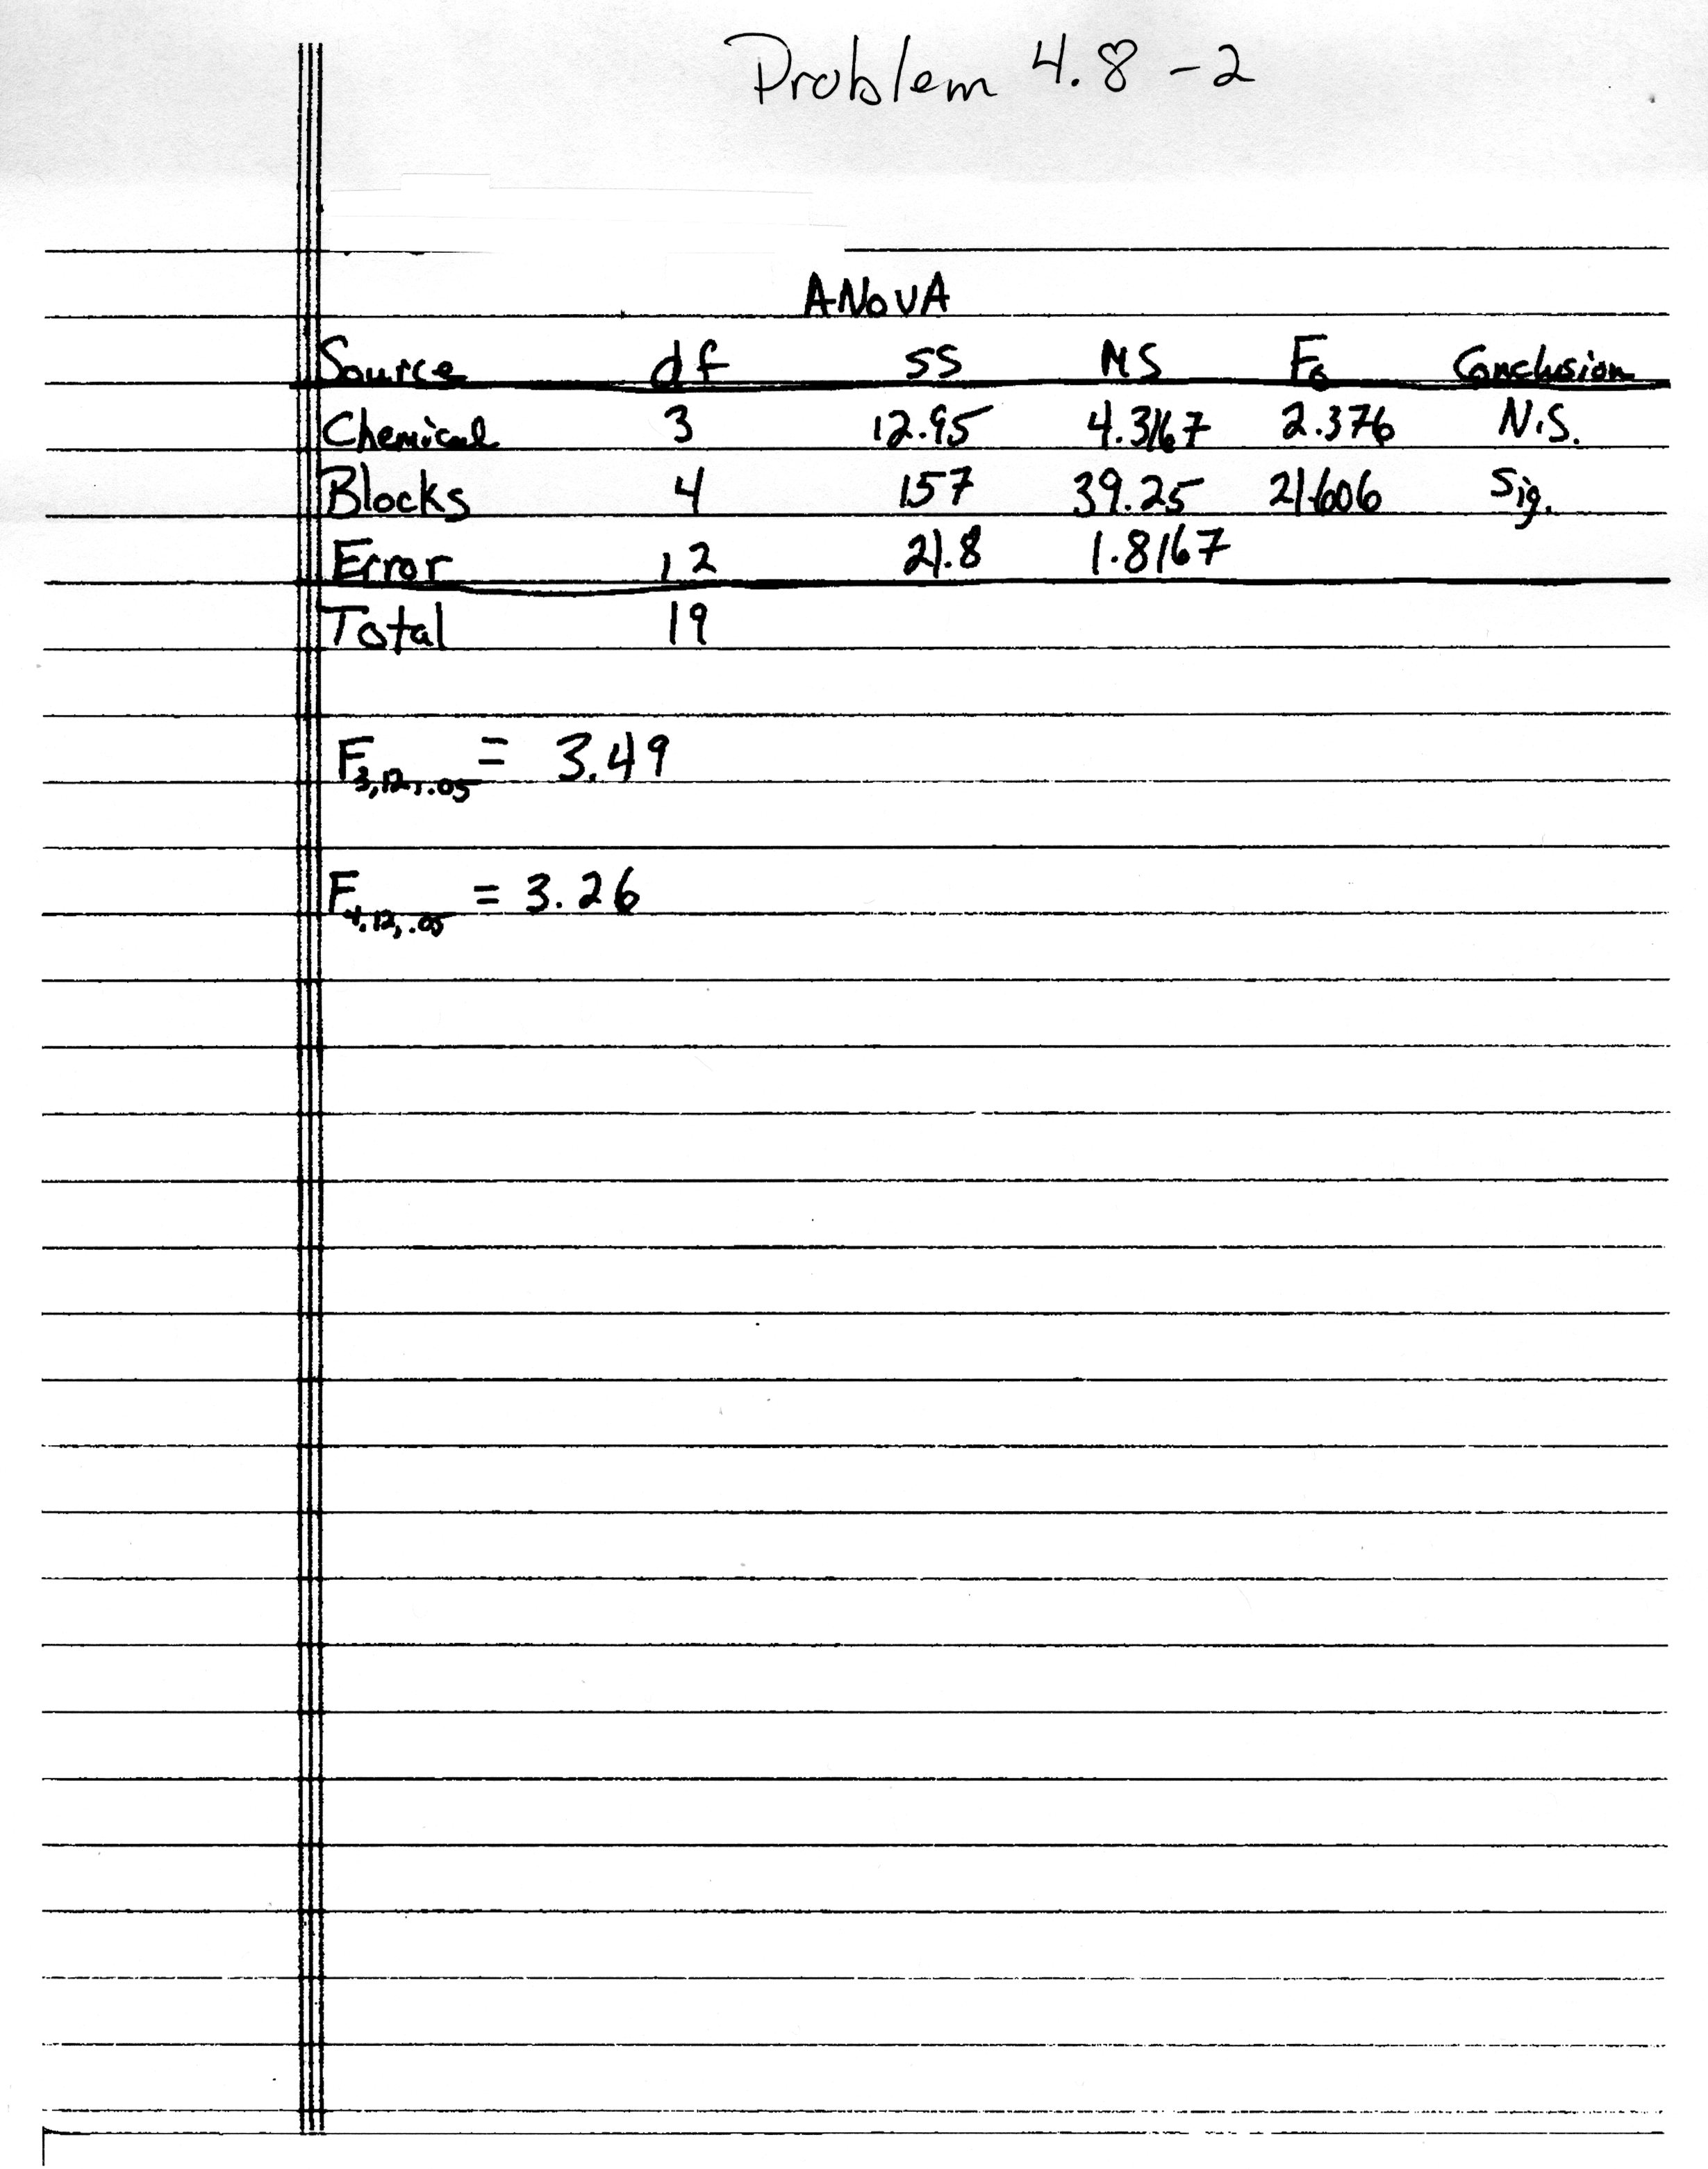 Problem 4.8-2
ANOVA
Source df SS MS F₀ Conclusion
Chemical 3 12.95 4.3167 2.376 N.S.
Blocks 4 157 39.25 21.606 Sig.
Error 12 21.8 1.8167
Total 19
F₃,₁₂,.₀₅ = 3.49
F₄,₁₂,.₀₅ = 3.26